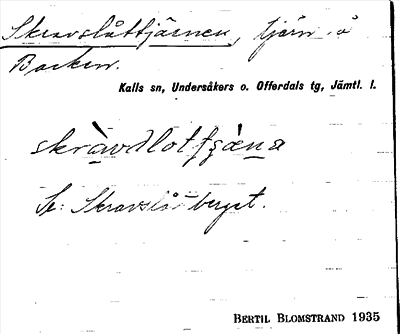 Skravslåttjärnen, tjärn å
Backen.
Kalls sn, Undersåkers o. Offerdals tg, Jämtl. l.
Se: Skravslåberget.
BERTIL BLOMSTRAND 1935